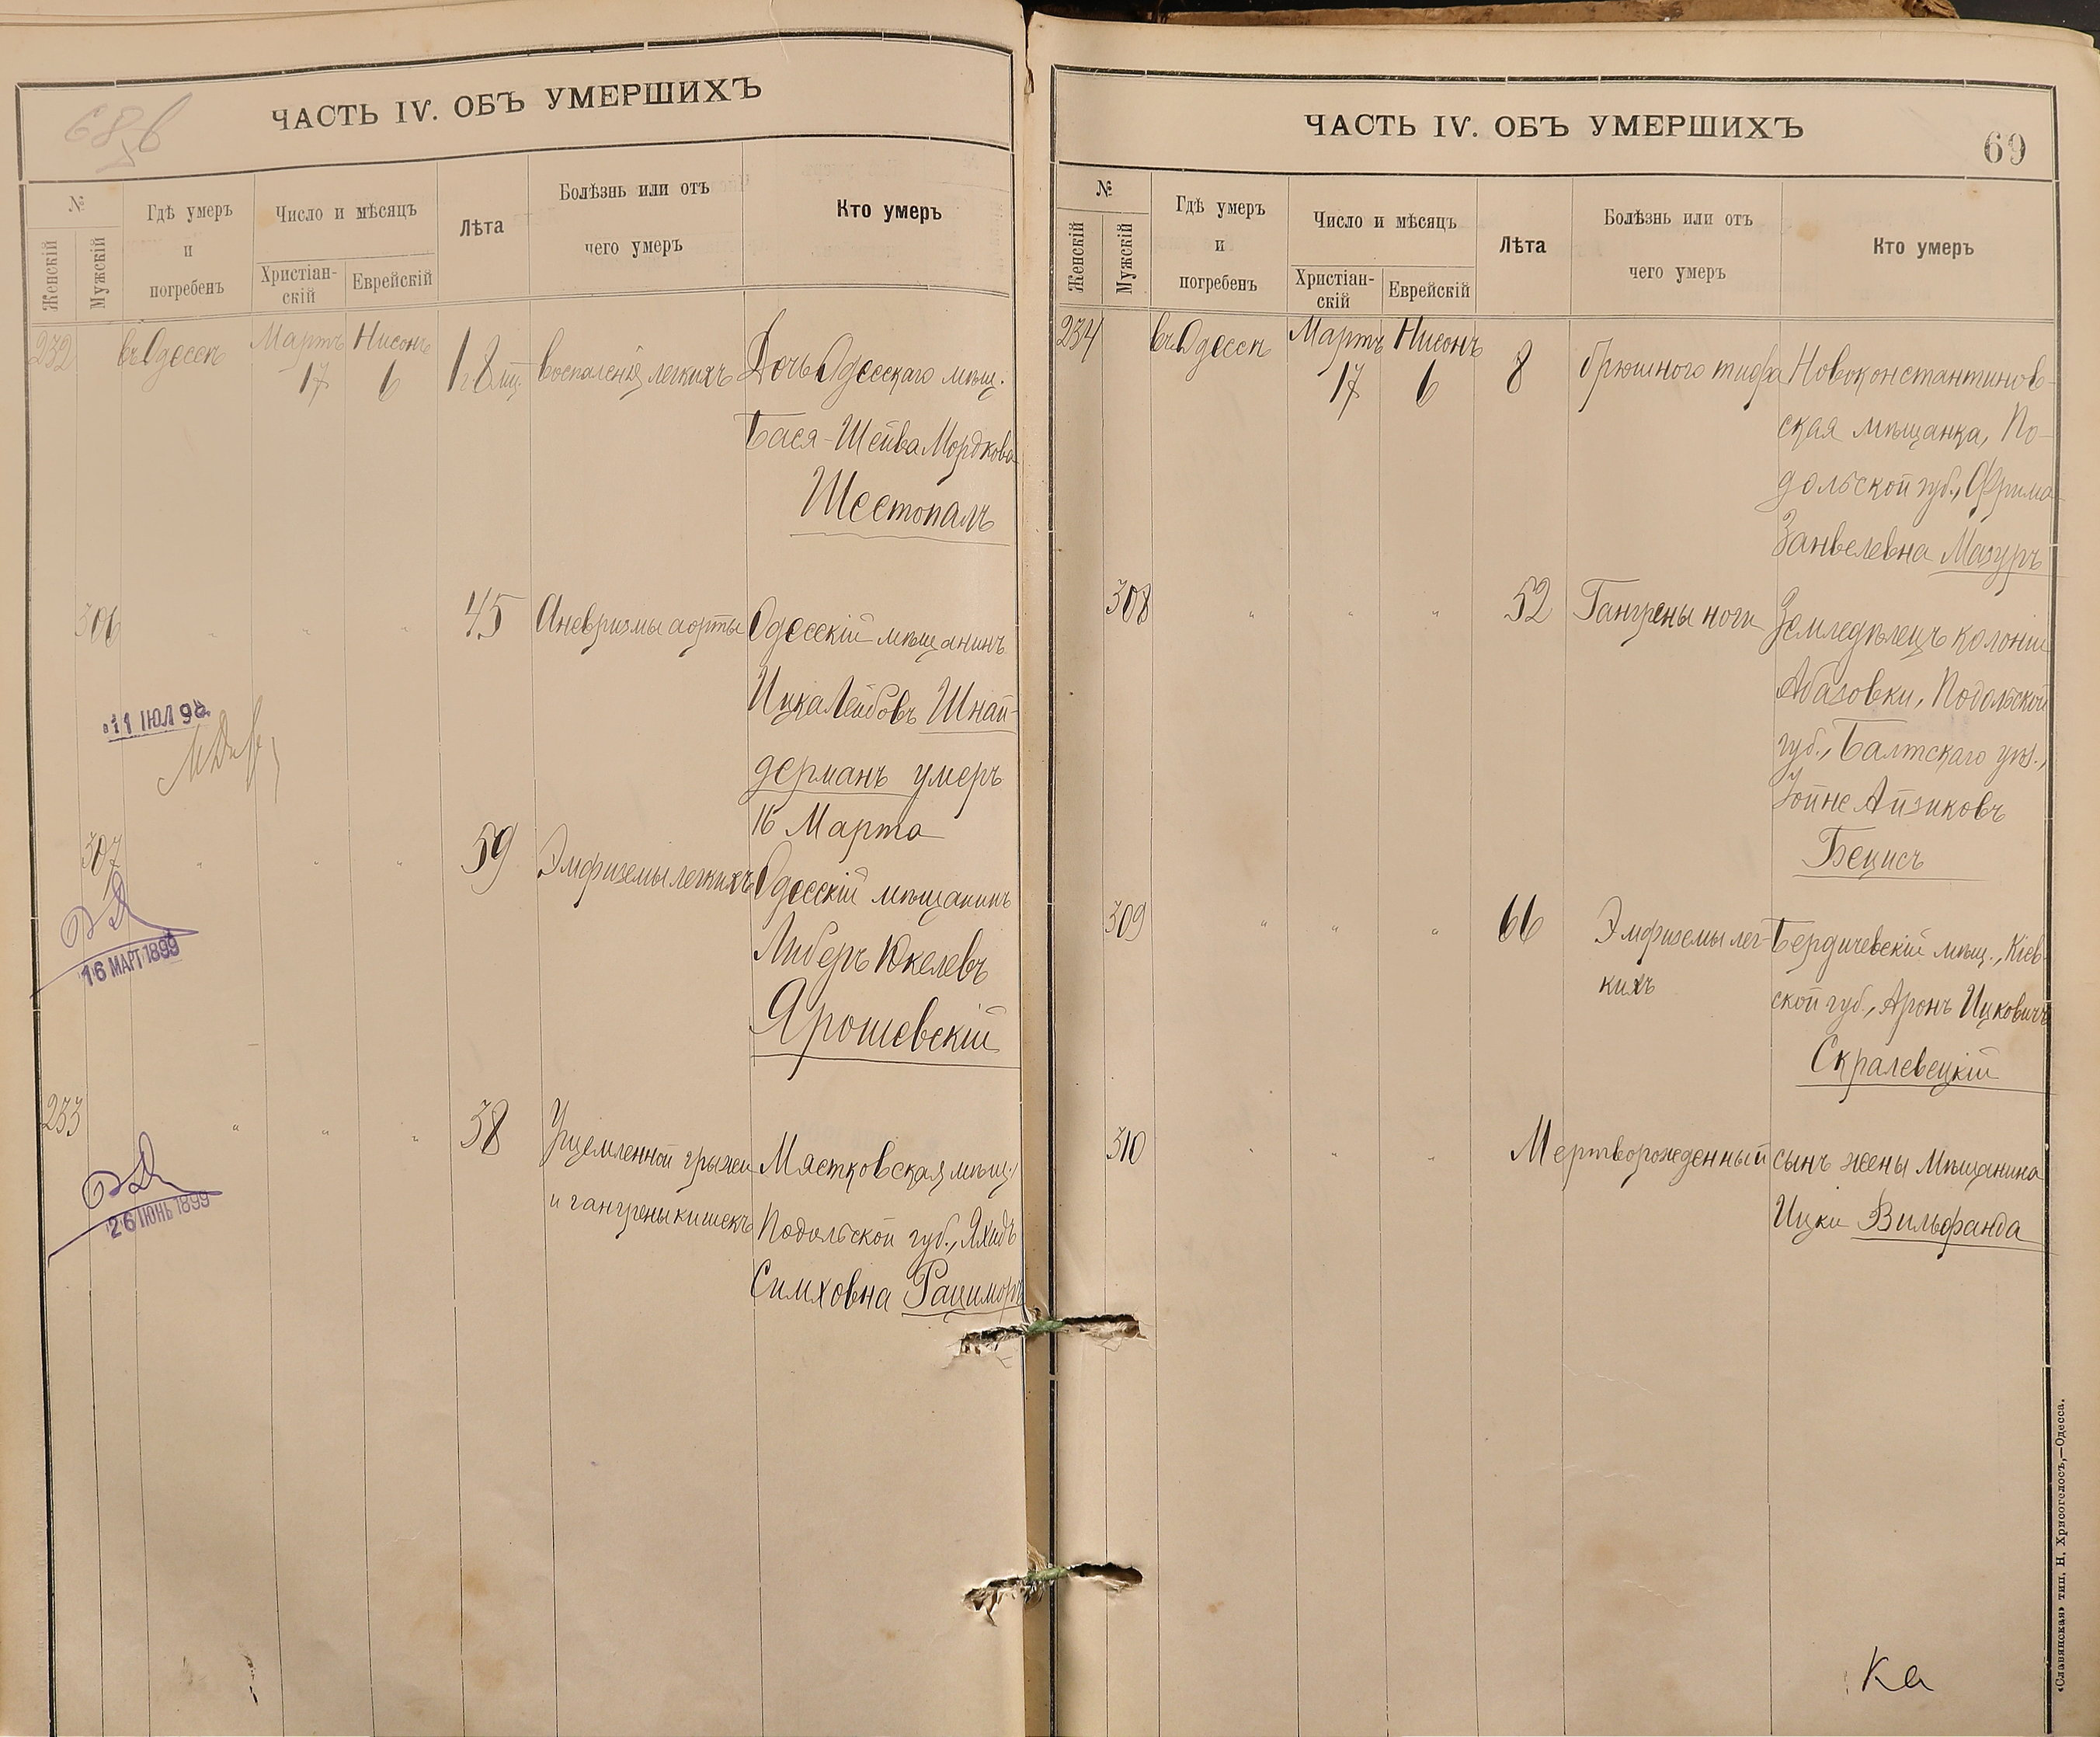 68 б
ЧАСТЬ IV. ОБЪ УМЕРШИХЪ
№
Женскій
Мужскій
Гдѣ умеръ
и
погребенъ
Число и мѣсяцъ
Христіан-
скій
Еврейскій
Лѣта
Болѣзнь или отъ
чего умеръ
Кто умеръ
232 въ Одессѣ Мартъ 17 Нисонъ 6 1 г. 8 мц. воспаленія легкихъ Дочь Одесскаго мѣщ.
Бася-Шейва Мордкова
Шестопалъ
306 " " " 45 Аневризмы аорты Одесскій мѣщанинъ
Ицка Лейбовъ Шнай-
дерманъ умеръ
16 Марта
11 ІЮЛ 98
307 " " " 59 Эмфиземы легкихъ Одесскій мѣщанинъ
Либеръ Юкелевъ
Ярошевскій
16 МАРТ 1899
233 " " " 38 Ущемленной грыжи Мястковская мѣщ.
и гангрены кишекъ Подольской губ.,
Симховна Рацимор
26 ІЮНЬ 1899
ЧАСТЬ IV. ОБЪ УМЕРШИХЪ
69
№
Женскій
Мужскій
Гдѣ умеръ
и
погребенъ
Число и мѣсяцъ
Христіан-
скій
Еврейскій
Лѣта
Болѣзнь или отъ
чего умеръ
Кто умеръ
234 въ Одессѣ Мартъ 17 Нисонъ 6 8 брюшного тифа Новоконстантинов-
ская мѣщанка, По-
дольской губ., Фрима
Занвелевна Мазуръ
308 " " " 52 Гангрены ноги Земледѣлецъ колоніи
Абазовки, Подольской
губ., Балтскаго уѣз.,
Іойне Айзиковъ
Бецисъ
309 " " " 66 Эмфиземы лег- Бердичевскій мѣщ., Кіев-
кихъ ской губ., Аронъ Ицковичъ
Скралевецкій
310 " " " Мертворожденный сынъ жены мѣщанина
Ицки Вильфанда
Ка
«Славянская» тип. Н. Хрисогелосъ,—Одесса.